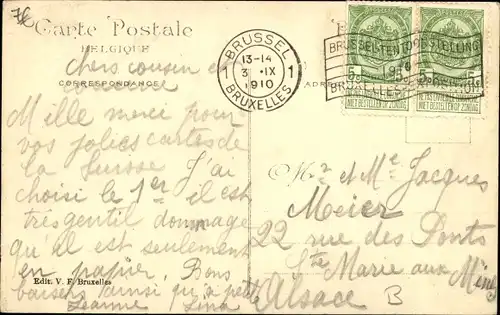 Carte Postale
BELGIQUE
CORRESPONDANCE
BRUSSEL
13-14
3 IX
1910
1 1
BRUXELLES
BRUSSEL TENTOONSTELLING
BRUXELLES EXPOSITION
5c 5c
NIET BESTELLEN OP ZONDAG
NIET BESTELLEN OP ZONDAG
chers cousin et
Mille merci pour
vos jolies cartes de
la Suisse J'ai
choisi le 1er il est
très gentil dommage
qu'il est seulement
en papier. Bons
baisers ainsi qu'à petite
Jeanne Lina
Edit. V. F. Bruxelles
Mr et Me Jacques
Meier
22 rue des Ponts
Ste Marie aux Mines
Alsace B